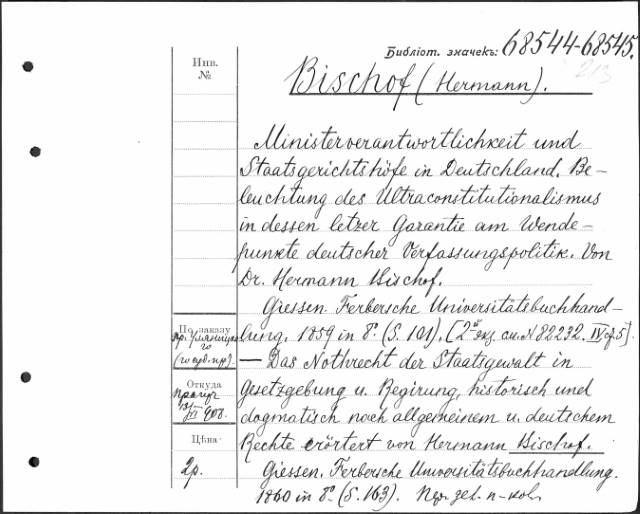 Библіот. значекъ: 68544-68545.
213
Инв.
№
Bischof (Hermann).
Ministerverantwortlichkeit und
Staatsgerichtshöfe in Deutschland. Be-
leuchtung des Ultraconstitutionalismus
in dessen letzer Garantie am Wende-
punkte deutscher Verfassungspolitik. Von
Dr. Hermann Bischof.
Giessen. Ferbersche Universitätsbuchhand-
lung. 1859 in 8º. (S. 101). [2й экз. см. N 82232. IV
По заказу
— Das Nothrecht der Staatsgewalt in
Откуда
Gesetzgebung u. Regirung, historisch und
908.
dogmatisch nach allgemeinem u. deutschem
Цѣна
Rechte erörtert von Hermann Bischof.
2р.
Giessen. Ferbersche Universitätsbuchhandlung.
1860 in 8º (S. 163).